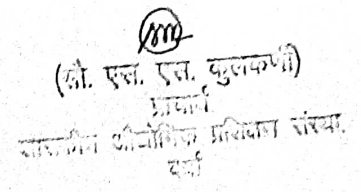 (सौ. एस. एस. कुलकर्णी)
प्राचार्य
शासकीय औद्योगिक प्रशिक्षण संस्था,
वर्धा